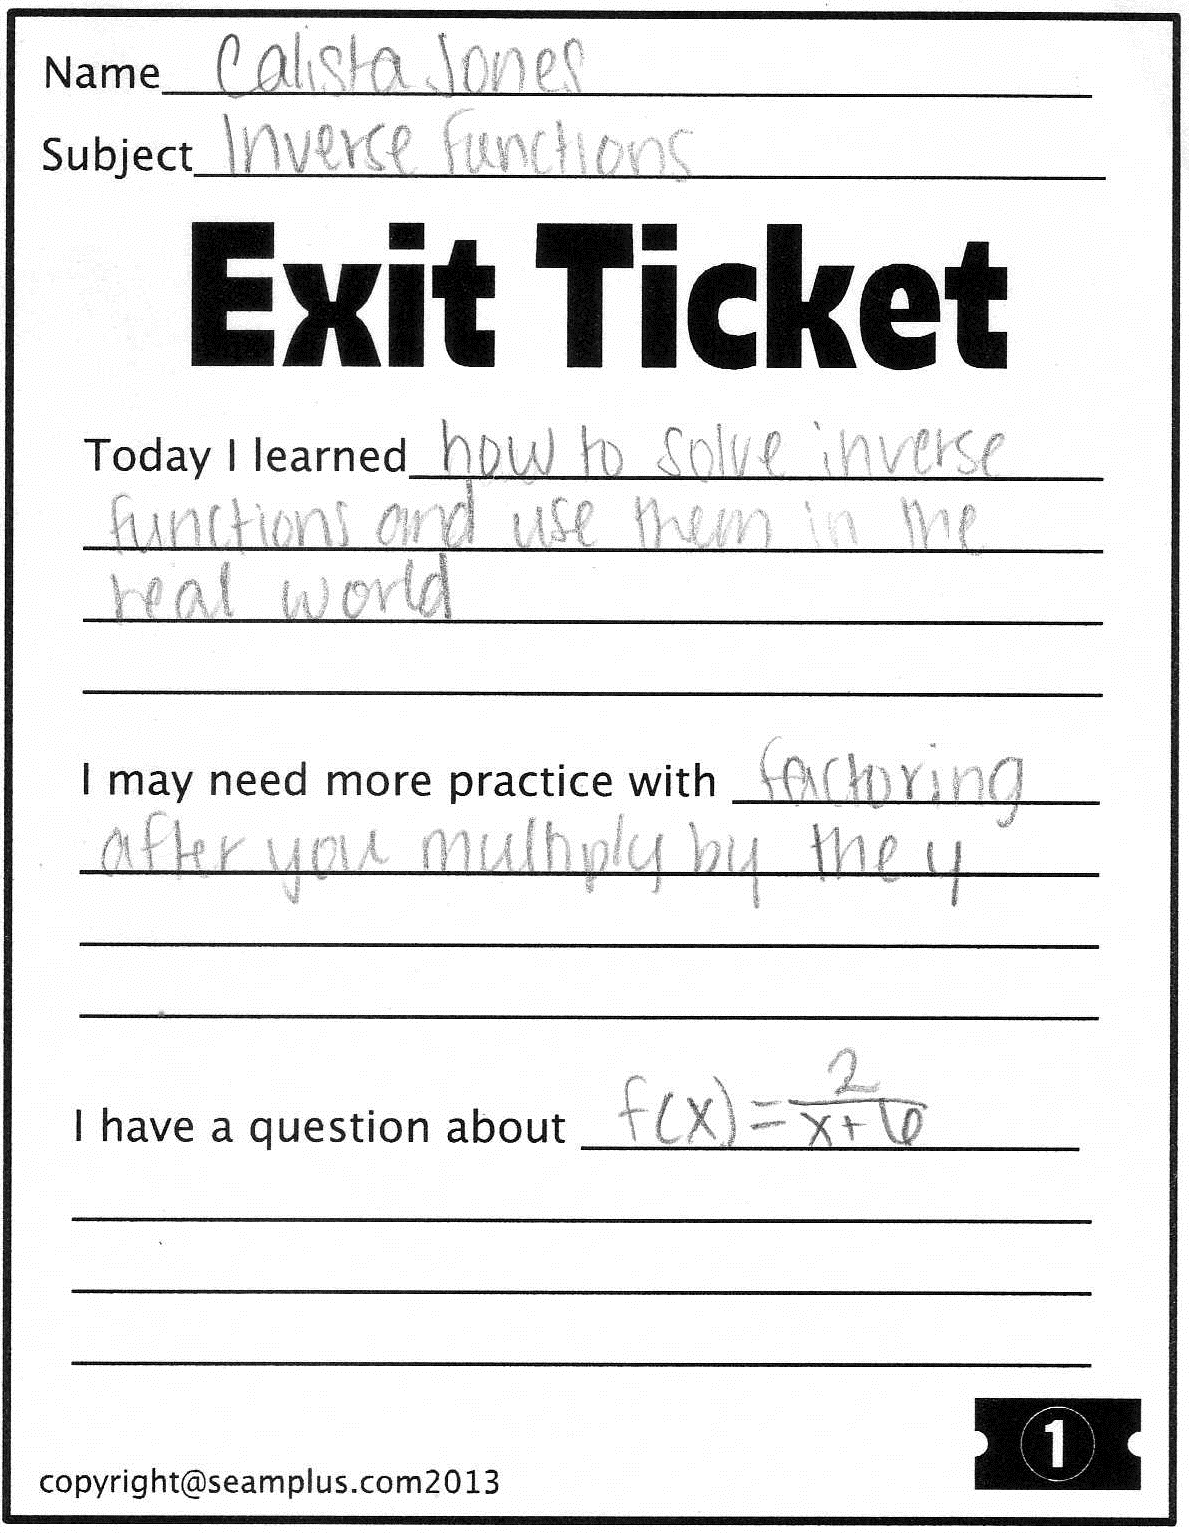 Name Calista Jones
Subject Inverse Functions
Exit Ticket
Today I learned how to solve inverse
functions and use them in the
real world
I may need more practice with factoring
after you multiply by the y
I have a question about f(x)=2/(x+6)
1
copyright@seamplus.com2013